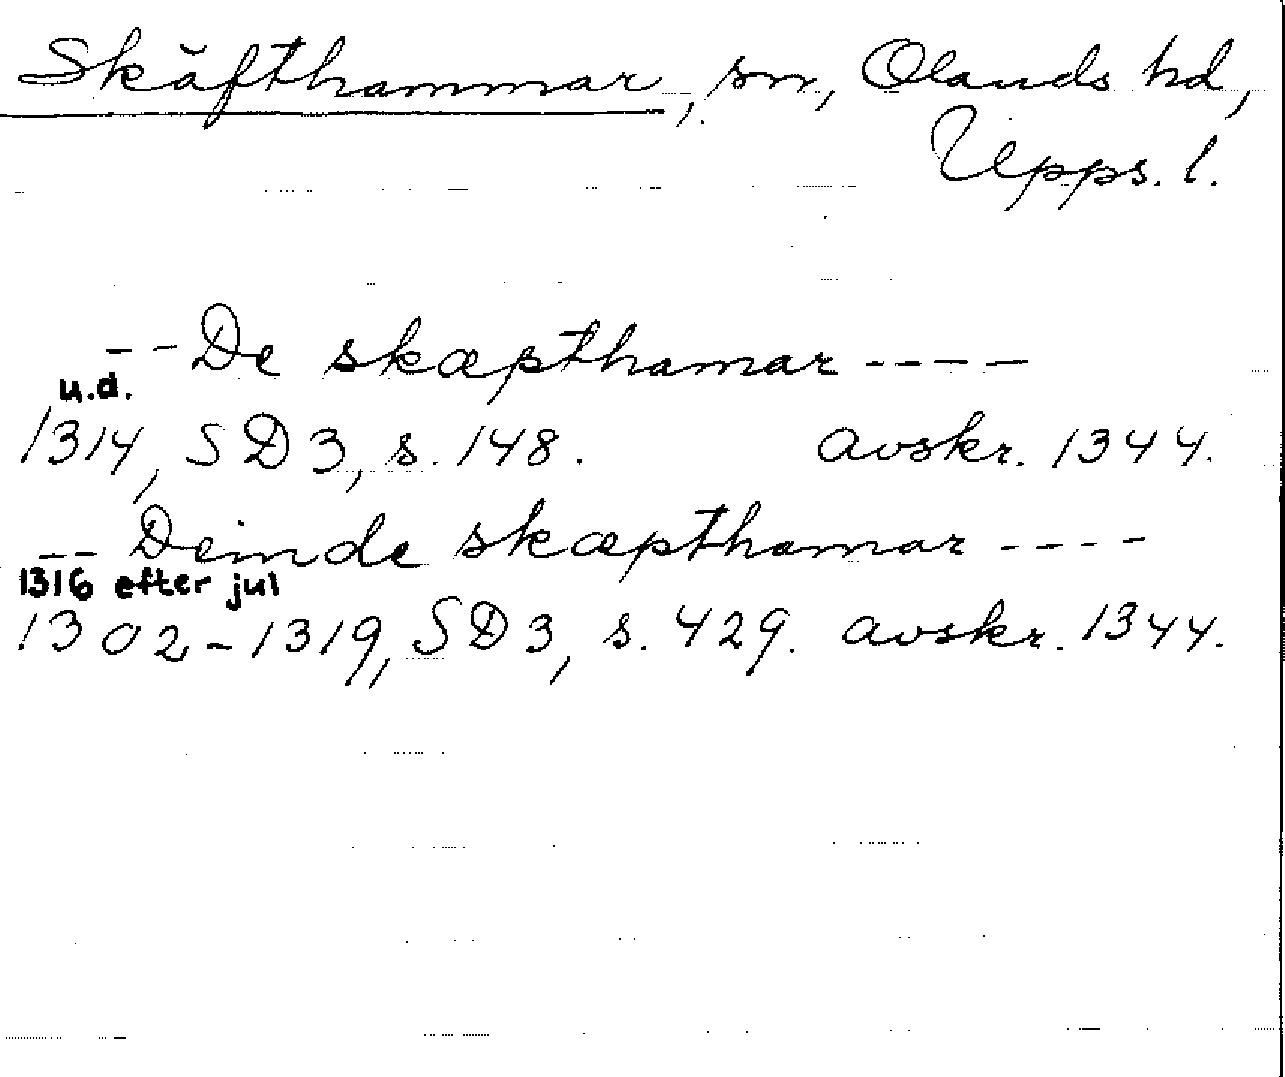 Skäfthammar, sn, Olands hd,
Upps. l.
-- De skæpthamar ----
u.d.
1314, SD 3, s. 148. avskr. 1344.
-- Deinde skæpthamar ----
1316 efter jul
1302-1319, SD 3, s. 429. avskr. 1344.